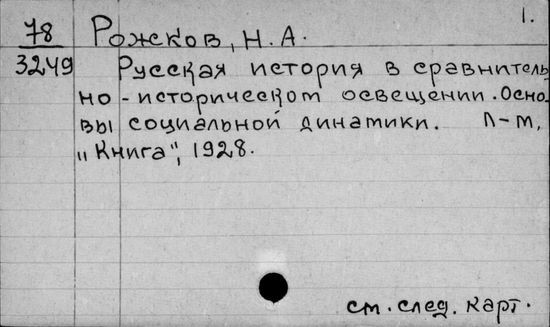 1.
78
3249
Рожков, Н. А.
Русская история в сравнитель
но-историческом освещении. Осно-
вы социальной динамики. Л-м,
„Книга", 1928.
см. след. карт.